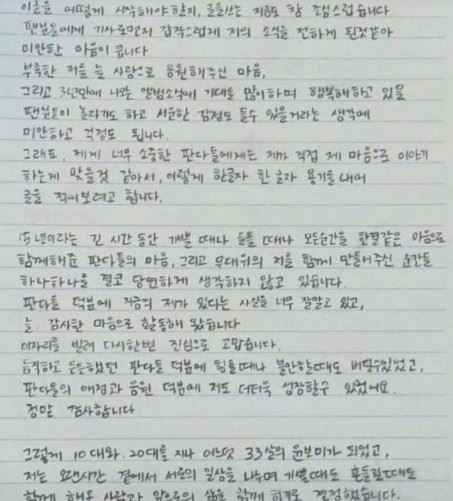 이글을 어떻게 시작해야할지, 글을쓰는 지금도 참 조심스럽습니다
팬분들에게 기사로먼저 갑작스럽게 저의 소식을 전하게 된것같아
미안한 마음이 큽니다
부족한 저를 늘 사랑으로 응원해주신 마음,
그리고 3년만에 나오는 앨범소식에 기대를 많이하며 행복해하고 있을
팬분들이 놀라기도 하고 서운한 감정도 들수 있을거라는 생각에
미안하고 걱정도 됩니다.
그래도, 제게 너무 소중한 판다들에게는 제가 직접 제 마음으로 이야기
하는게 맞을것 같아서, 이렇게 한글자 한 글자 용기를 내어
글을 적어보려고 합니다.
15년이라는 긴 시간 동안 기쁠 때나 슬플 때나 모든순간을 한결같은 마음으로
함께해준 판다들의 마음, 그리고 무대위의 저를 함께 만들어주신 순간들
하나하나를 결코 당연하게 생각하지 않고 있습니다.
판다들 덕분에 지금의 제가 있다는 사실을 너무 잘알고 있고,
늘 감사한 마음으로 활동해 왔습니다
이자리를 빌려 다시한번 진심으로 고맙습니다.
듬직하고 든든했던 판다들 덕분에 힘들때나 불안할때도 버틸수있었고,
판다들의 애정과 응원 덕분에 저도 더더욱 성장할수 있었어요.
정말 감사합니다
그렇게 10대와 20대를 지나 어느덧 33살의 윤보미가 되었고,
저는 오랜시간 곁에서 서로의 일상을 나누며 기쁠때도 흔들릴때도
함께 해온 사람과 앞으로의 삶을 함께 하기로 결정했습니다.